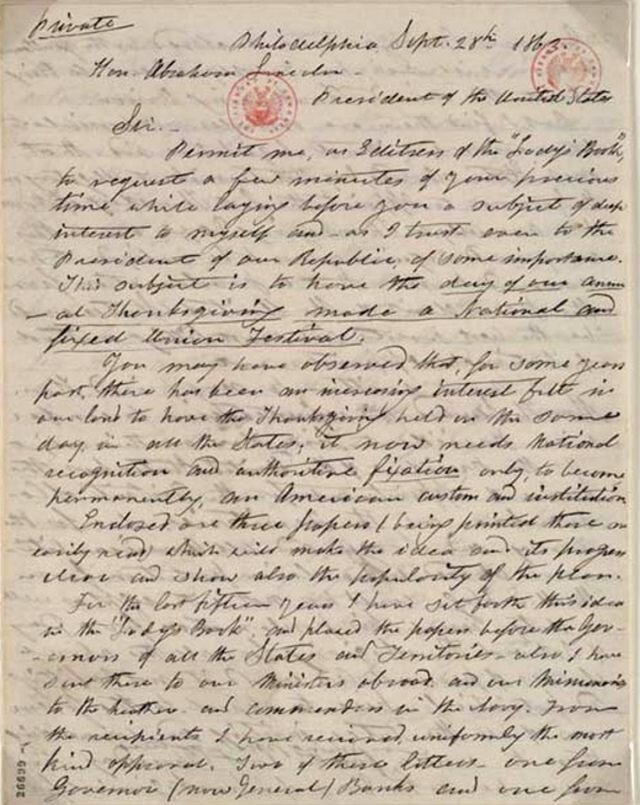 Private
Philadelphia Sept. 28th 1863.
Hon. Abraham Lincoln -
President of the United States
Sir. -
Permit me, as Editress of the "Lady's Book",
to request a few minutes of your precious
time, while laying before you a subject of deep
interest to myself and - as I trust - even to the
President of our Republic, of some importance.
This subject is to have the day of our annu-
-al Thanksgiving made a National and
fixed Union Festival.
You may have observed that, for some years
past, there has been an increasing interest felt in
our land to have the Thanksgiving held on the same
day, in all the States; it now needs National
recognition and authoritive fixation, only, to become
permanently, an American custom and institution.
Enclosed are three papers (being printed these are
easily read) which will make the idea and its progress
clear and show also the popularity of the plan.
For the last fifteen years I have set forth this idea
in the "Lady's Book", and placed the papers before the Gov-
-ernors of all the States and Territories - also I have
sent these to our Ministers abroad, and our Missionaries
to the heathen - and commanders in the Navy. From
the recipients I have received, uniformly the most
kind approval. Two of these letters, one from
Governor (now General) Banks and one from
26699